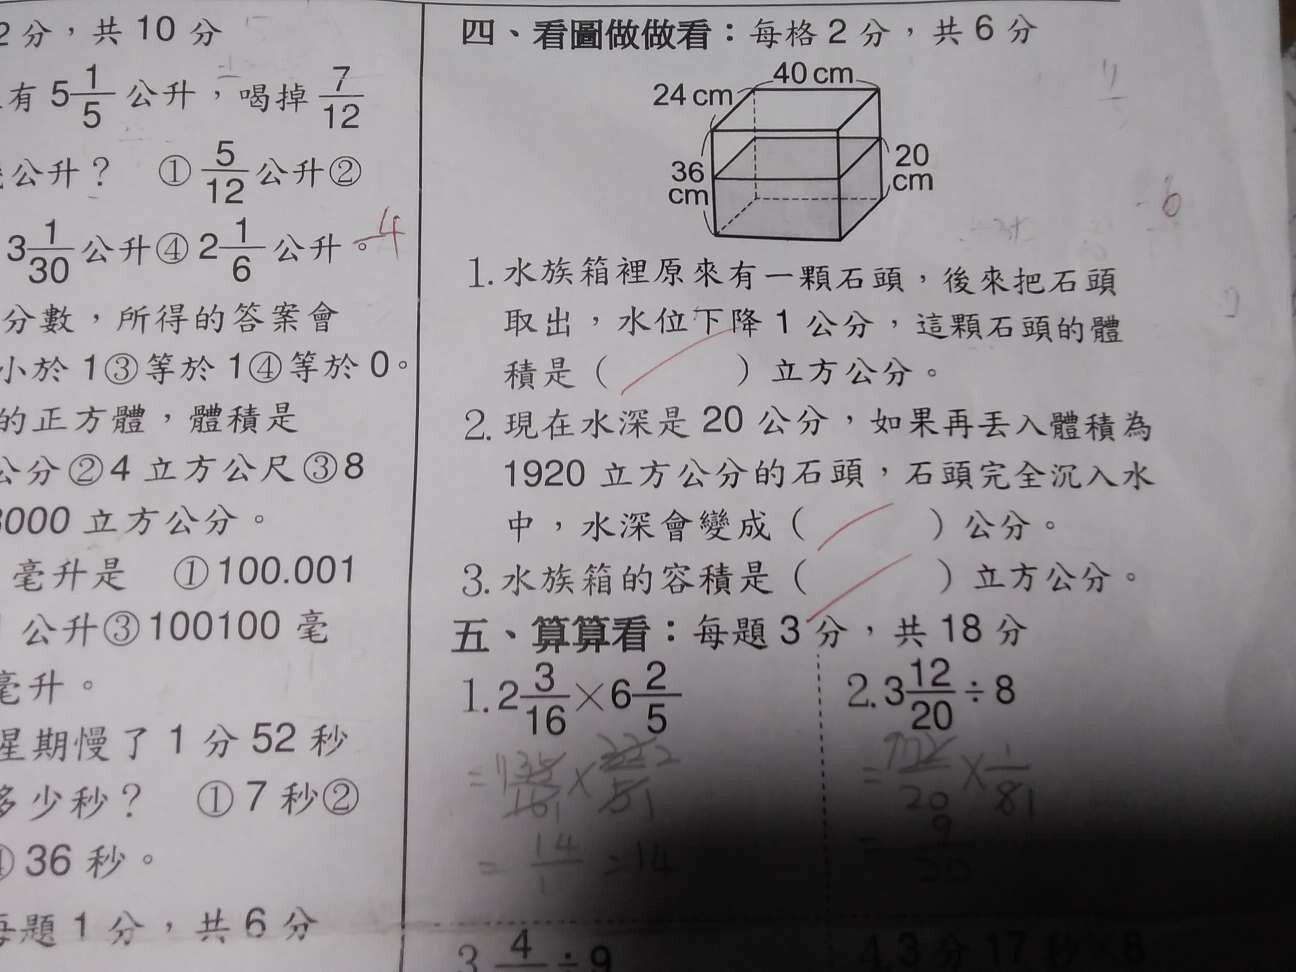 2分，共10分
有 5 1/5 公升，喝掉 7/12
公升？ ① 5/12 公升②
3 1/30 公升④ 2 1/6 公升。
-4
分數，所得的答案會
小於1③等於1④等於0。
的正方體，體積是
公分②4立方公尺③8
000立方公分。
毫升是 ①100.001
公升③100100毫
毫升。
星期慢了1分52秒
多少秒？ ①7秒②
36秒。
每題1分，共6分
四、看圖做做看：每格2分，共6分
40cm
24cm
36
cm
20
cm
-6
1.水族箱裡原來有一顆石頭，後來把石頭
取出，水位下降1公分，這顆石頭的體
積是（ ）立方公分。
2.現在水深是20公分，如果再丟入體積為
1920立方公分的石頭，石頭完全沉入水
中，水深會變成（ ）公分。
3.水族箱的容積是（ ）立方公分。
五、算算看：每題3分，共18分
1. 2 3/16 × 6 2/5
= 14/1 = 14
2. 3 12/20 ÷ 8
= 9/20
3. 4 ÷ 9
4. 3分17秒×8